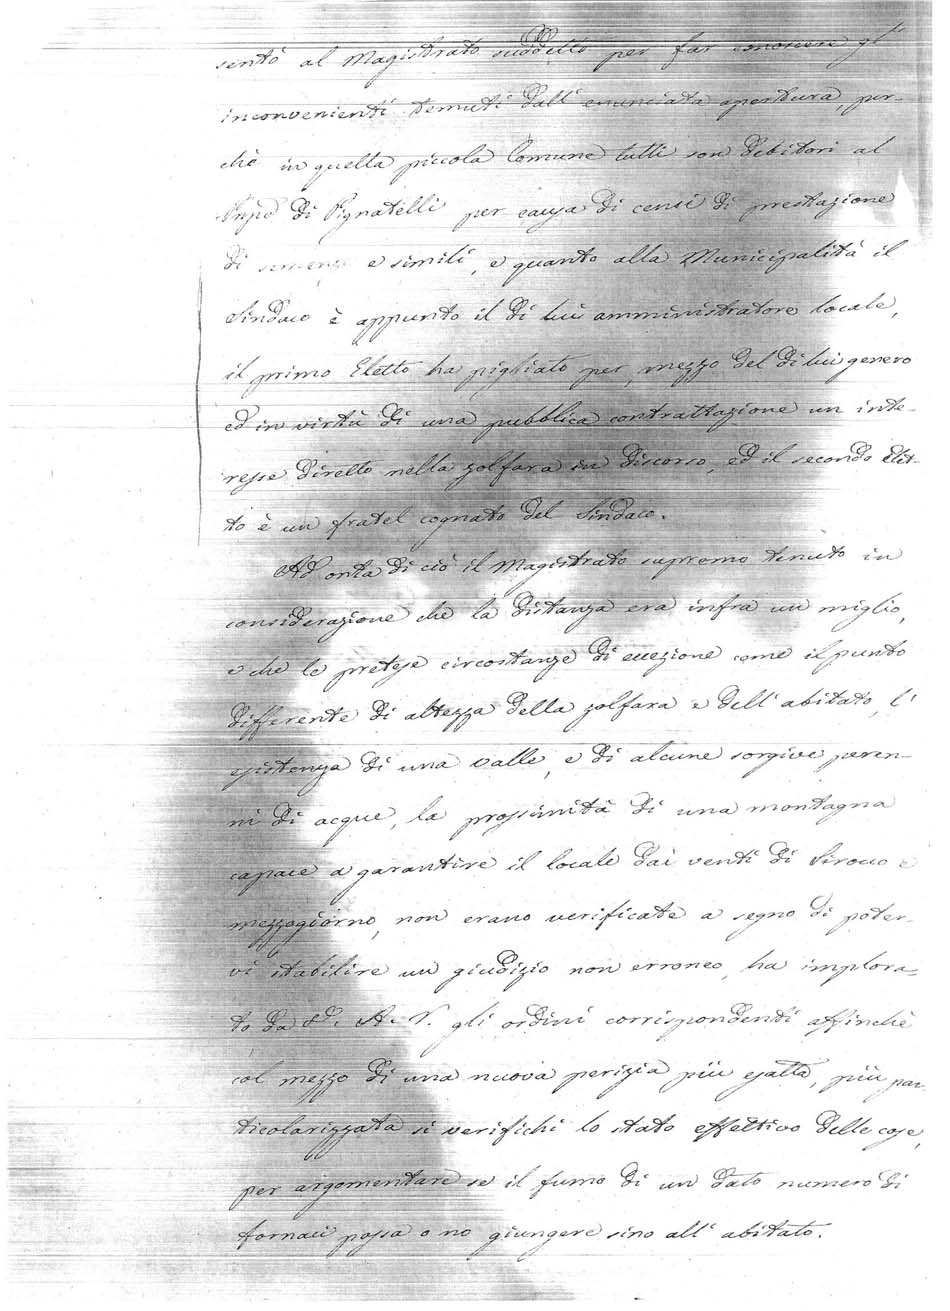 sentò al Magistrato suddetto per far conoscere gl'
inconvenienti temuti dall'enunciata apertura, per-
chè in quella piccola Comune tutti son debitori al
di Pignatelli per causa di censi di prestazione
di e simili, e quanto alla Municipalità il
Sindaco è appunto il di lui amministratore locale,
il primo Eletto ha pigliato per mezzo del di lui genero
ed in virtù di una pubblica contrattazione un inte-
resse diretto nella zolfara in discorso, ed il secondo Elet-
to è un fratel cognato del Sindaco.
Ad onta di ciò il Magistrato supremo tenuto in
considerazione che la distanza era infra un miglio,
e che le pretese circostanze di eccezione come il punto
differente di altezza della zolfara e dell'abitato, l'
esistenza di una valle, e di alcune sorgive peren-
ni di acque, la prossimità di una montagna
capace a garantire il locale dai venti di Sirocco e
mezzogiorno, non erano verificate a segno di poter-
vi stabilire un giudizio non erroneo, ha implora-
to da V. A. R. gli ordini corrispondenti affinchè
col mezzo di una nuova perizia più esatta, più par
ticolarizzata si verifichi lo stato effettivo delle cose,
per argomentare se il fumo di un dato numero di
fornaci possa o no giungere sino all'abitato.